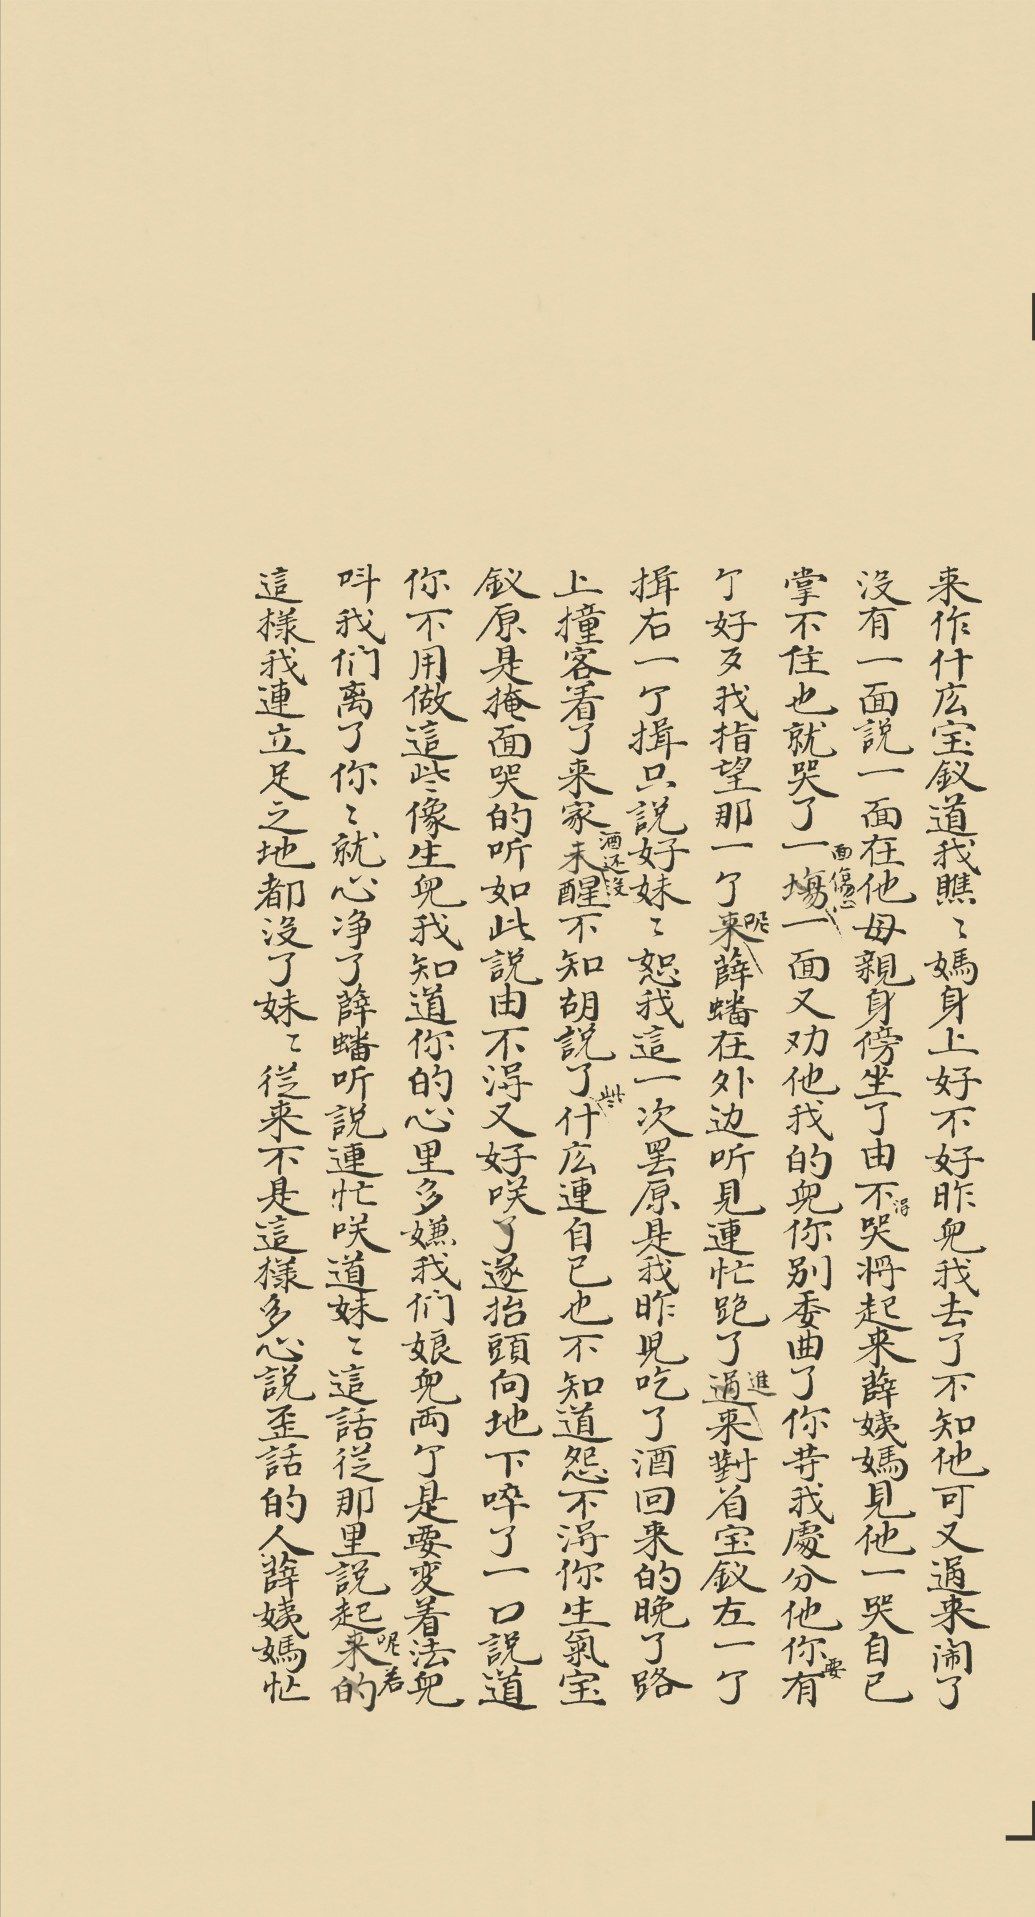 来作什庅宝釵道我瞧〻媽身上好不好昨兒我去了不知他可又過来闹了
没有一面説一面在他母親身傍坐了由不得哭將起来薛姨媽見他一哭自已
掌不住也就哭了一塲面傷心一面又劝他我的兒你别委曲了你苐我處分他你要有
个好歹我指望那一个来呢薛蟠在外边听見連忙跑了過進来對着宝釵左一个
揖右一个揖只説好妹〻恕我這一次罢原是我昨兒吃了酒回来的晚了路
上撞客着了来家酒还没未醒不知胡説了些什庅連自已也不知道怨不得你生氣宝
釵原是掩面哭的听如此説由不得又好咲了遂抬頭向地下啐了一口説道
你不用做這些像生兒我知道你的心里多嫌我们娘兒両个是要变着法兒
呌我们离了你〻就心净了薛蟠听説連忙咲道妹〻這話從那里説起来呢若的
這樣我連立足之地都没了妹〻從来不是這樣多心説歪話的人薛姨媽忙